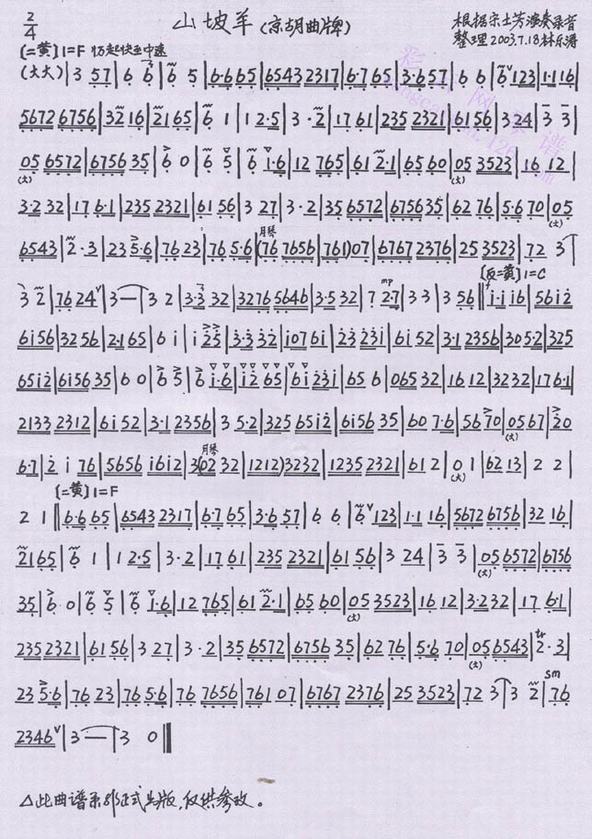 2/4 山坡羊（京胡曲牌） 根据宗士芳演奏录音
整理2003.7.18林乐涛
〔二黄〕1=F 慢起快至中速
(大大)|3 57|6 6|6 5|6·665|6543 2317|6·765|3·657|6 6|6 123|1·1 16|
5672 6756|3216|2165|6 1|1 2·5|3 ·2|17 61|235 2321|61 56|3 24|3 3|
05 6572|6756 35|6 0|6 5|6 1·6|12 765|61 2·1|65 60|05 3523|16 12|
3·2 32|17 6·1|235 2321|61 56|3 27|3·2|35 6572|675635|62 76|5·6 70|05
6543|2·3|23 5·6|76 23|76 5·6|(76 7656|761)07|6767 2376|25 3523|72 3|
3 2|76 24|3—|3 2|3·3 32|3276 5646|3·5 32|7 2·7|33|3 56‖〔反二黄〕1=C 1·1 16|5612
6156|32 56|2·1 65|6 1|1 23|3·3 32|1076 1|23 231|61 52|3·1 2356|305·2|325
6512|6156 35|6 0|6 5|6 1·6|12 65|61 231|65 6|065 32|16 12|3232|176·1|
2133 2312|61 52|3·1 2356|3 5·2|325 6512|6156 35|60 7·6|56 70|05 67|20
6·7|2 1 76|5656 1612|3(02 32|1212)3232|1235 2321|61 2|0 1|62 13|2 2|
〔二黄〕1=F
2 1‖6·6 65|6543 2317|6·7 65|3·6 57|6 6|6 123|1·1 16|5672 6756|32 16|
2165|6 1|1 2·5|3·2|17 61|235 2321|61 56|3 24|3 3|05 6572|6756
35|6·0|6 5|6 1·6|12 765|61 2·1|65 60|05 3523|16 12|3·232|17 6·1|
235 2321|61 56|3 27|3·2|35 6572|6756 35|62 76|5·6 70|05 6543|2·3|
23 5·6|76 23|76 5·6|76 7656|761 07|6767 2376|25 3523|72 3|3 2|76
2346|3—|3 0‖
△此曲谱系非正式出版，仅供参考。